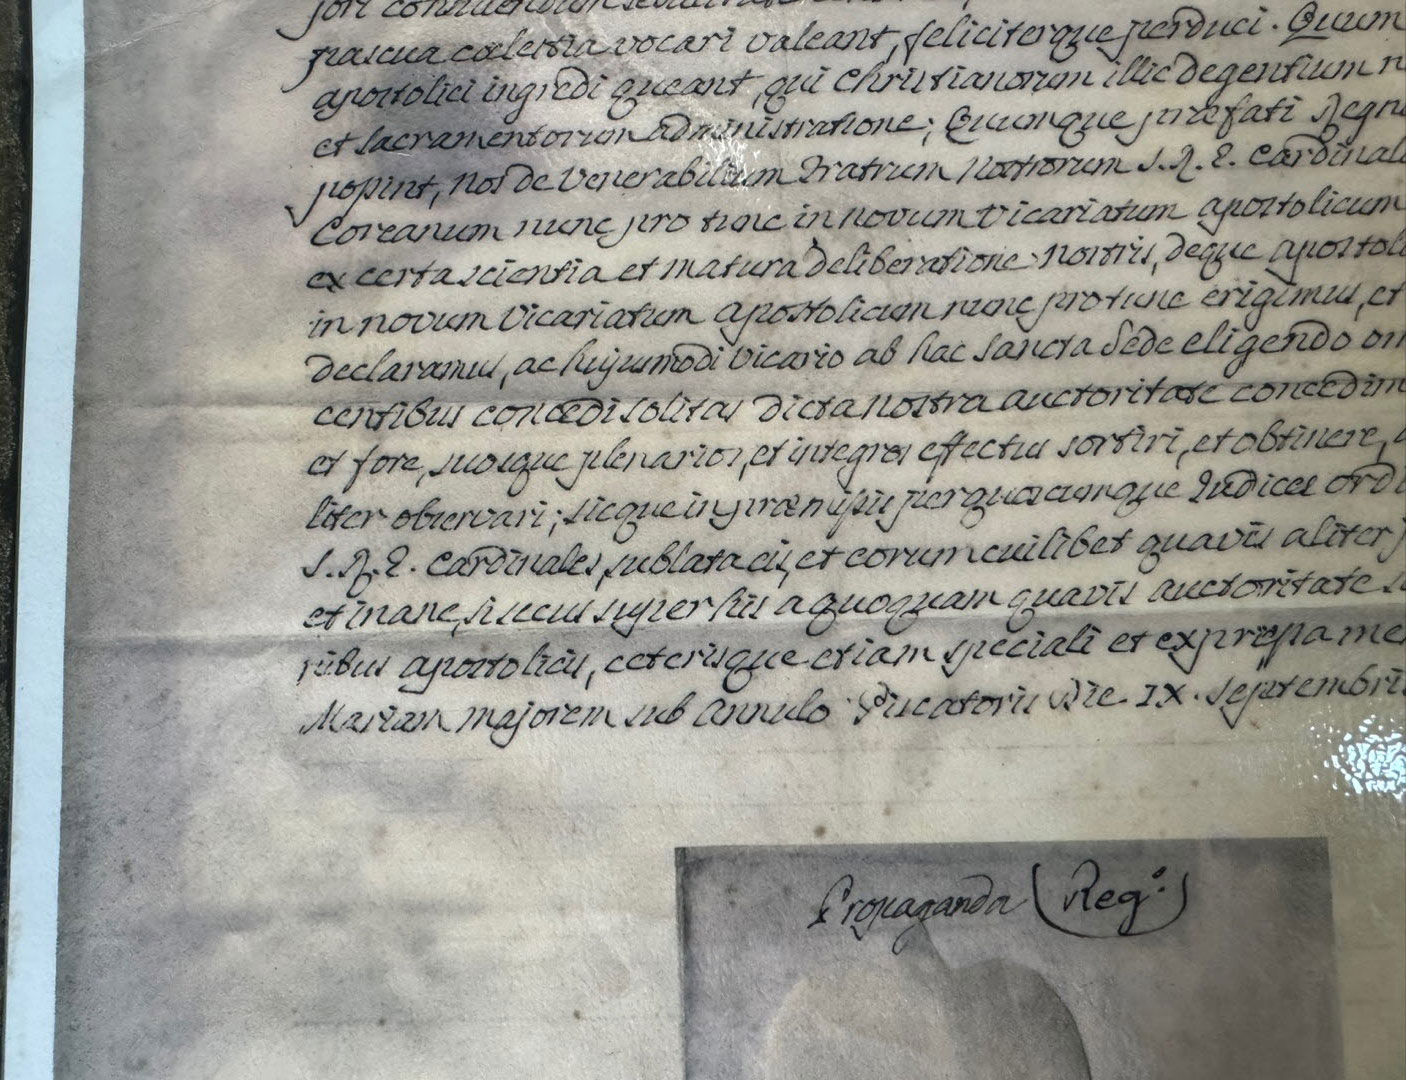 pascua coelestia vocari valeant, feliciterque perduci. Quum
apostolici ingredi queant, qui Christianorum illic degentium
et Sacramentorum administratione; Quumque præfati Regni
possint, Nos de Venerabilium Fratrum Nostrorum S. R. E. Cardinal
Coreanum nunc pro tunc in novum Vicariatum apostolicum
ex certa scientia et matura deliberatione nostris, deque apostoli
in novum Vicariatum apostolicum nunc pro tunc erigimus, et
declaramus, ac hujusmodi Vicario ab hac Sancta Sede eligendo om
centibus concedi solitas dicta nostra auctoritate concedim
et fore, suosque plenarios, et integros effectus sortiri, et obtinere,
liter observari; sicque in præmissis per quoscumque Judices ordi
S. R. E. Cardinales, sublata eis, et eorum cuilibet quavis aliter
et inane, si secus super his a quoquam quavis auctoritate
nibus apostolicis, ceterisque etiam speciali et expressa me
Mariam majorem sub Annulo Piscatoris Die IX. Septembris
Propaganda (Reg.º)